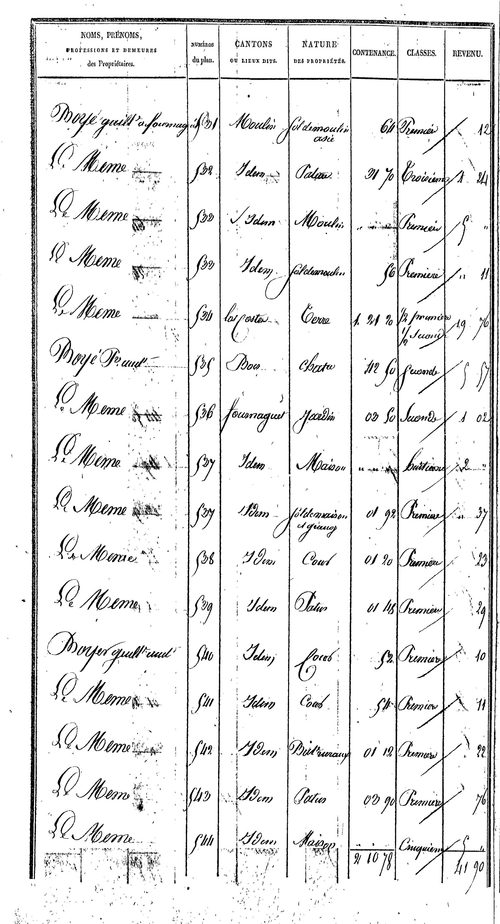 NOMS, PRÉNOMS, PROFESSIONS ET DEMEURES des Propriétaires. NUMÉROS du plan. CANTONS OU LIEUX DITS. NATURE DES PROPRIÉTÉS. CONTENANCE. CLASSES. REVENU.
Boyé guilt a fournaguet 531 Moulin sol de moulin 64 Premier 12
Le Meme 532 Idem Patus 31 70 Troisieme 1 24
Le Meme 533 Idem Moulin Premier 5 "
Le Meme 533 Idem sol de moulin 56 Premiere " 11
Le Meme 534 las Costes Terre 1 21 20 1/2 premiere 1/2 seconde 19 76
Boyé 535 Bois 42 50 seconde 5 57
Le Meme 536 fournaguet Jardin 03 50 Seconde 1 02
Le Meme 537 Idem Maison 2 "
Le Meme 537 Idem sol de maison et grange 01 92 Premiere " 37
Le Meme 538 Idem Cour 01 20 Premiere 23
Le Meme 539 Idem Patus 01 48 Premiere 29
Boyer guilt 540 Idem Cour 52 Premiere 10
Le Meme 541 Idem Cour 54 Premier 11
Le Meme 542 Idem Bat. ruraux 01 12 Premiere 22
Le Meme 543 Idem Patus 03 90 Premiere 76
Le Meme 544 Idem Maison Cinquieme 5 "
2 10 78 41 90